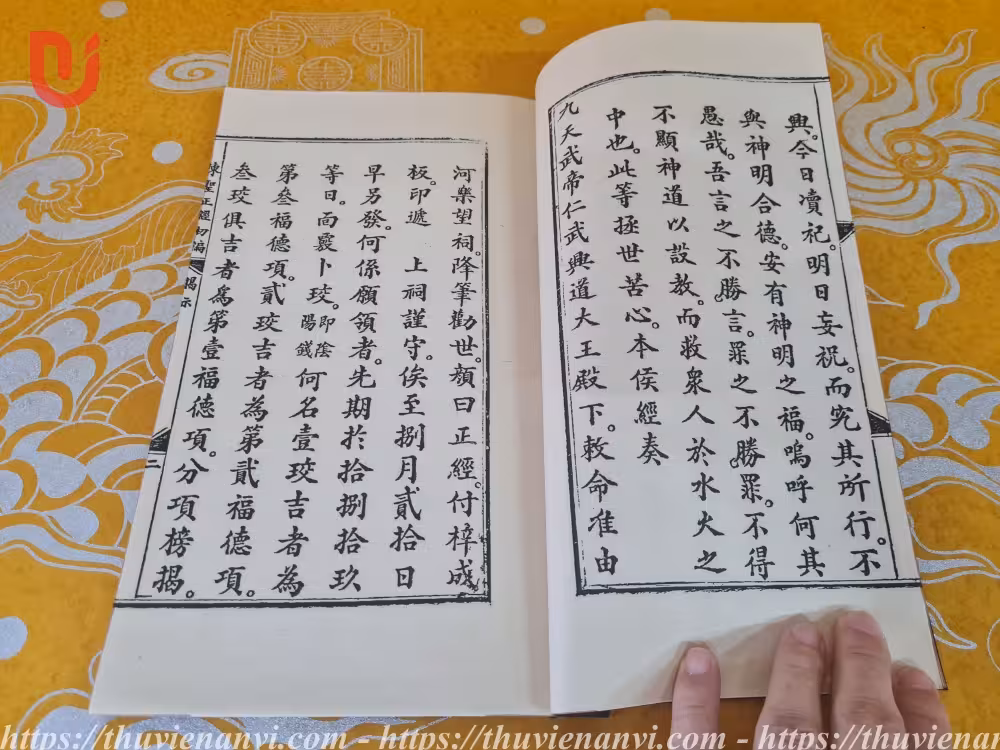 興。今日瀆祀。明日妄祝。而究其所行。不
與神明合德。安有神明之福。嗚呼何其
愚哉。吾言之不勝言。罪之不勝罪。不得
不顯神道以設教。而救衆人於水火之
中也。此等拯世苦心。本侯經奏
九天武帝仁武興道大王殿下。敕命准由
河樂望祠。降筆勸世。顏曰正經。付梓成
板。印遞 上祠謹守。俟至捌月貳拾日
早另發。何係願領者。先期於拾捌拾玖
等日。面卜珓。即陰陽錢何名壹珓吉者為
第叁福德項。貳珓吉者為第貳福德項。
叁珓俱吉者爲第壹福德項。分項榜揭。
聖正經初編 揭示 二
https://thuvienanvi.com - https://thuvienanvi.com - https://thuvienanv